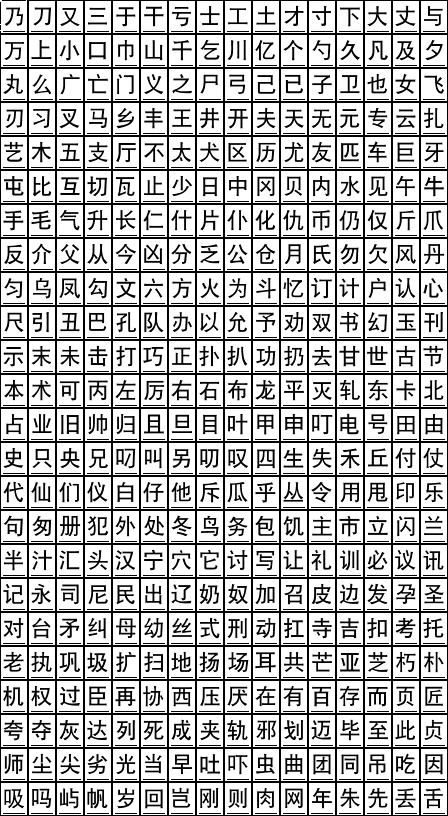 乃刀又三于干亏士工土才寸下大丈与
万上小口巾山千乞川亿个勺久凡及夕
丸么广亡门义之尸弓己已子卫也女飞
刃习叉马乡丰王井开夫天无元专云扎
艺木五支厅不太犬区历尤友匹车巨牙
屯比互切瓦止少日中冈贝内水见午牛
手毛气升长仁什片仆化仇币仍仅斤爪
反介父从今凶分乏公仓月氏勿欠风丹
匀乌凤勾文六方火为斗忆订计户认心
尺引丑巴孔队办以允予劝双书幻玉刊
示末未击打巧正扑扒功扔去甘世古节
本术可丙左厉右石布龙平灭轧东卡北
占业旧帅归且旦目叶甲申叮电号田由
史只央兄叼叫另叨叹四生失禾丘付仗
代仙们仪白仔他斥瓜乎丛令用甩印乐
句匆册犯外处冬鸟务包饥主市立闪兰
半汁汇头汉宁穴它讨写让礼训必议讯
记永司尼民出辽奶奴加召皮边发孕圣
对台矛纠母幼丝式刑动扛寺吉扣考托
老执巩圾扩扫地扬场耳共芒亚芝朽朴
机权过臣再协西压厌在有百存而页匠
夸夺灰达列死成夹轨邪划迈毕至此贞
师尘尖劣光当早吐吓虫曲团同吊吃因
吸吗屿帆岁回岂刚则肉网年朱先丢舌